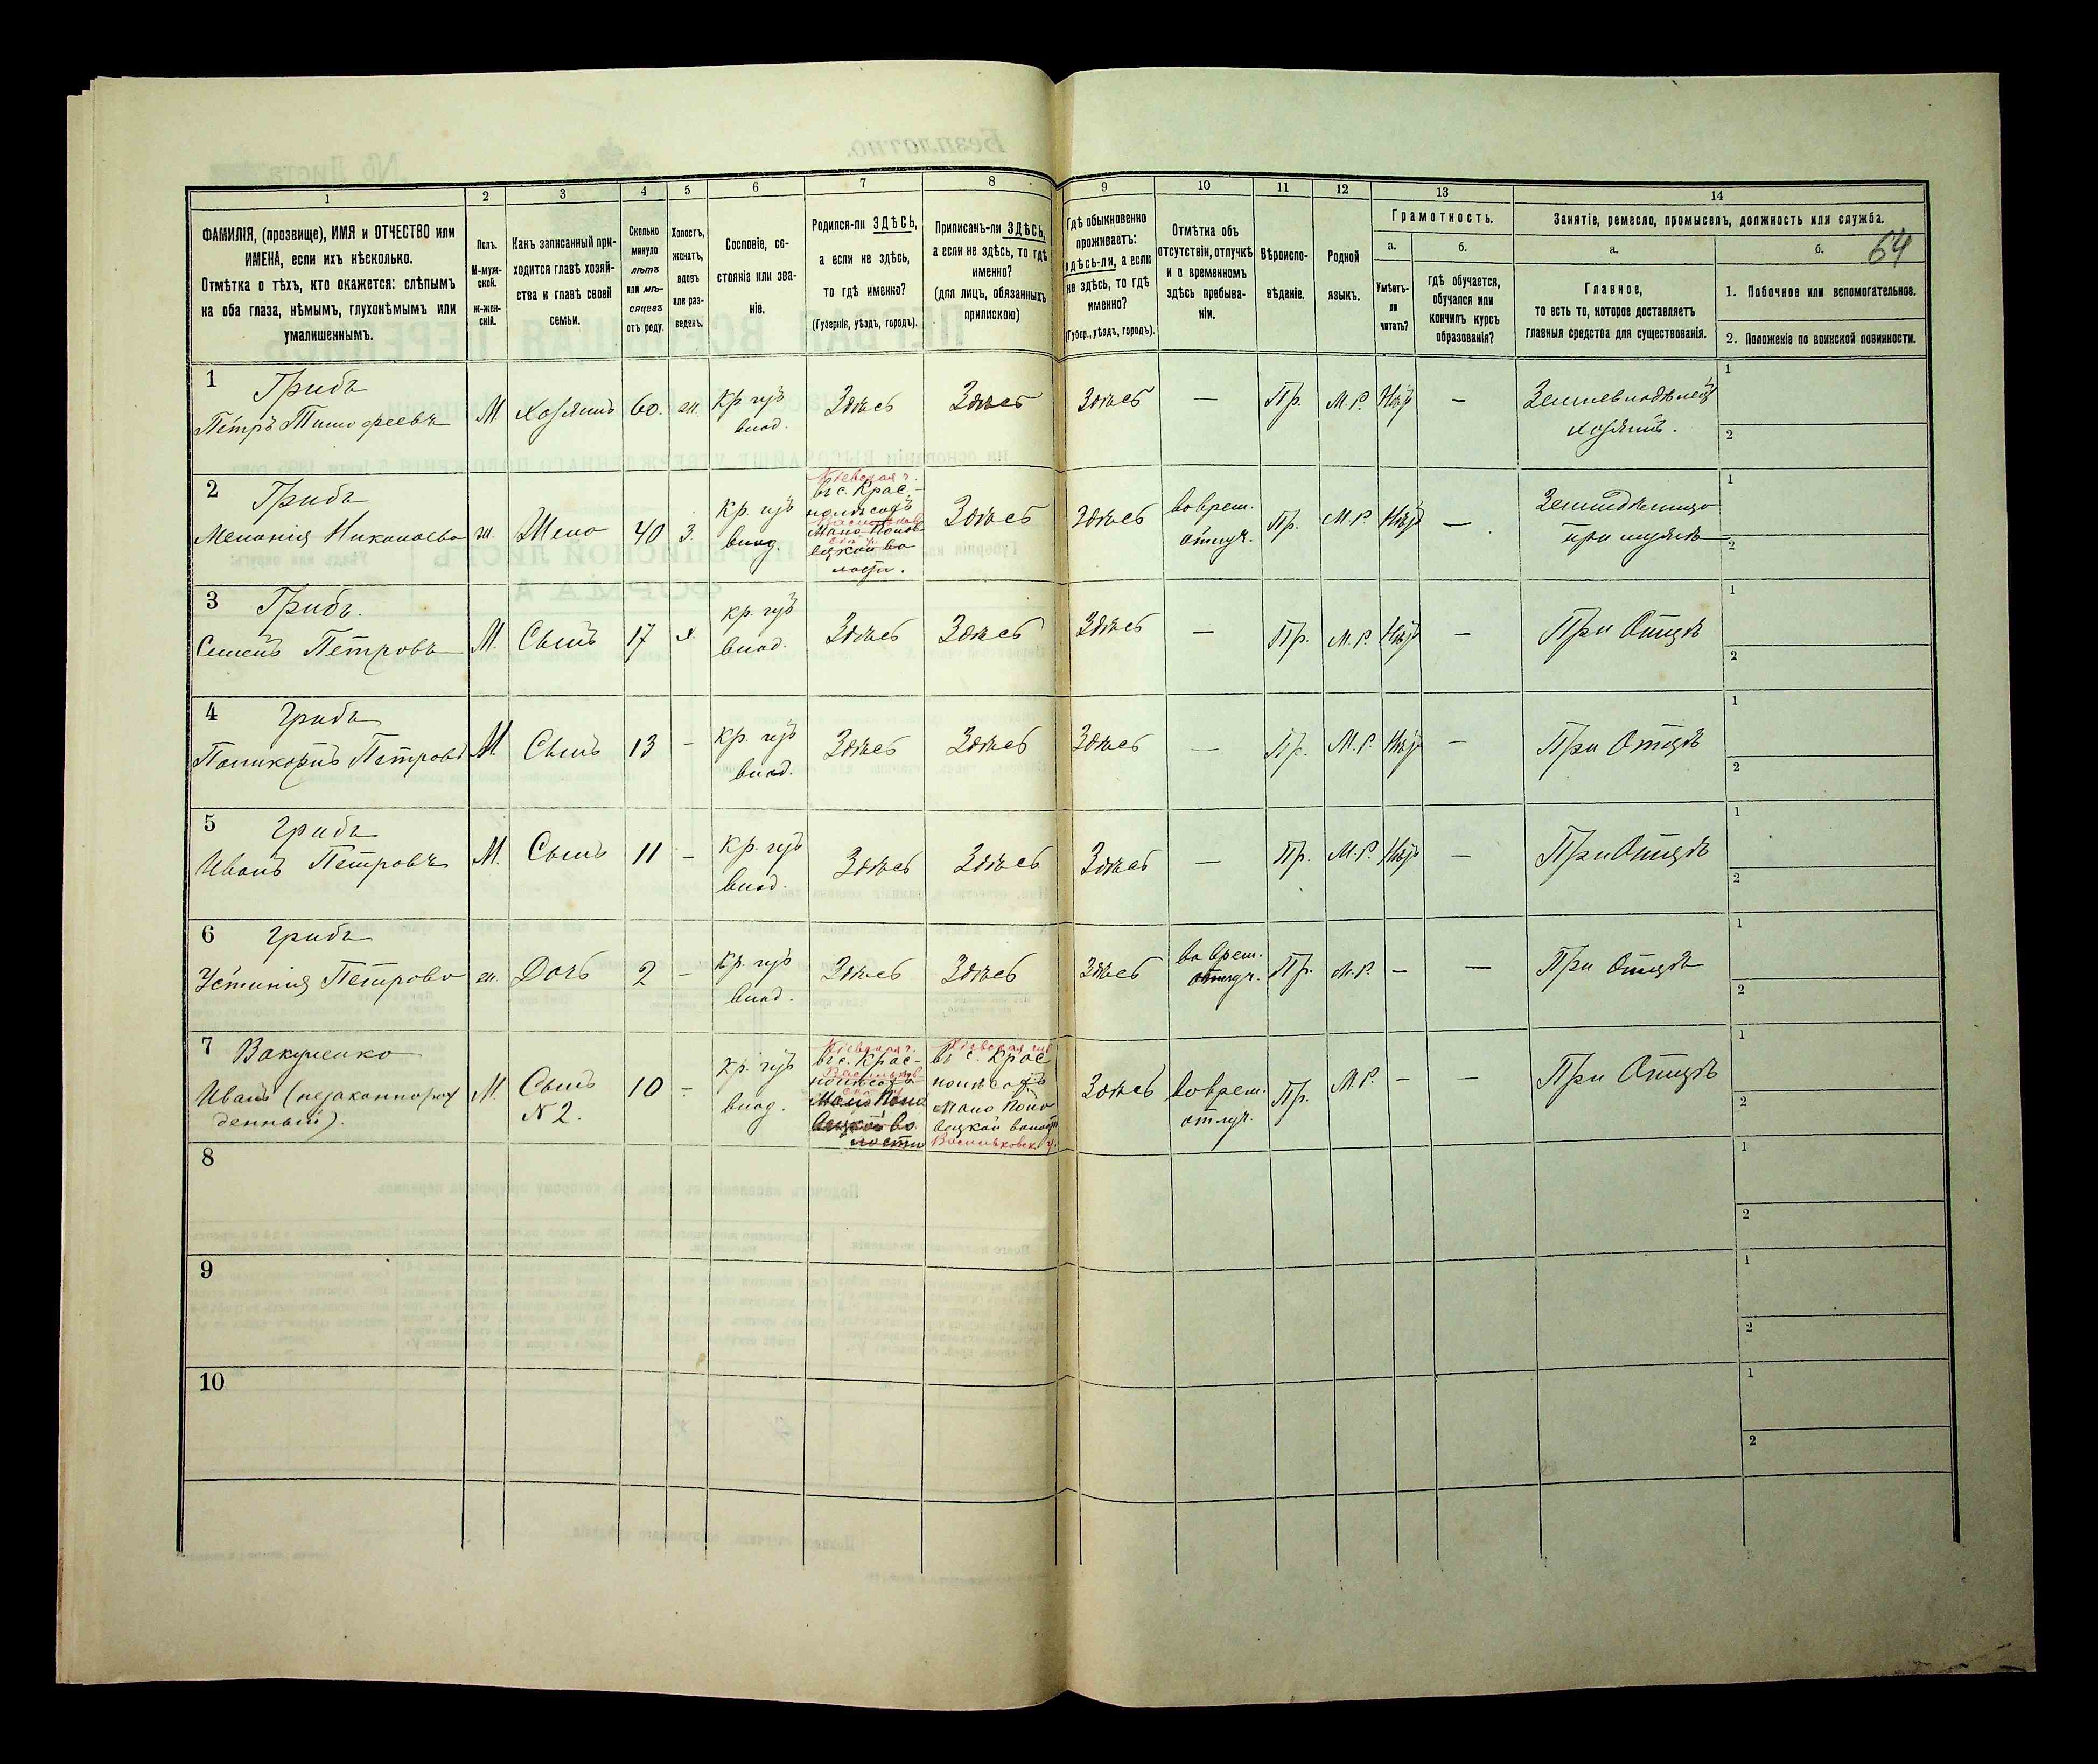 64
1 2 3 4 5 6 7 8 9 10 11 12 13 14
ФАМИЛІЯ, (прозвище), ИМЯ и ОТЧЕСТВО или
ИМЕНА, если ихъ нѣсколько.
Отмѣтка о тѣхъ, кто окажется: слѣпымъ
на оба глаза, нѣмымъ, глухонѣмымъ или
умалишеннымъ.
Полъ.
М-муж-
ской.
ж-жен-
скій.
Какъ записанный при-
ходится главѣ хозяй-
ства и главѣ своей
семьи.
Сколько
минуло
лѣтъ
или мѣ-
сяцевъ
отъ роду.
Холостъ,
женатъ,
вдовъ
или раз-
веденъ.
Сословіе, со-
стояніе или зва-
ніе.
Родился-ли ЗДѢСЬ,
а если не здѣсь,
то гдѣ именно?
(Губернія, уѣздъ, городъ).
Приписанъ-ли ЗДѢСЬ,
а если не здѣсь, то гдѣ
именно?
(для лицъ, обязанныхъ
припискою)
Гдѣ обыкновенно
проживаетъ:
здѣсь-ли, а если
не здѣсь, то гдѣ
именно?
(Губер., уѣздъ, городъ).
Отмѣтка объ
отсутствіи, отлучкѣ
и о временномъ
здѣсь пребыва-
ніи.
Вѣроиспо-
вѣданіе.
Родной
языкъ.
Грамотность.
а.
Умѣетъ-
ли
читать?
б.
Гдѣ обучается,
обучался или
кончилъ курсъ
образованія?
Занятіе, ремесло, промыселъ, должность или служба.
а.
Главное,
то есть то, которое доставляетъ
главныя средства для существованія.
б.
1. Побочное или вспомогательное.
2. Положеніе по воинской повинности.
1 Грибъ
Петръ Тимофеевъ М Хозяинъ 60. ж. кр. изъ
влад. Здѣсь Здѣсь Здѣсь — Пр. М.Р. Нѣт —
хозяинъ.
1
2
2 Гриба
Меланія Николаева ж. Жена 40 з. кр. изъ
влад.
Кіевская г.
въ с. Крас-
Мало Поло-
вецкой во
лости.
Здѣсь Здѣсь во врем.
отлуч. Пр. М.Р. Нѣт —
при мужѣ
1
2
3 Грибъ.
Семенъ Петровъ М. Сынъ 17 х. кр. изъ
влад. Здѣсь Здѣсь Здѣсь — Пр. М.Р. Нѣт — При Отцѣ
1
2
4 Грибъ
Поликарпъ Петровъ М. Сынъ 13 — кр. изъ
влад. Здѣсь Здѣсь Здѣсь — Пр. М.Р. Нѣт — При Отцѣ
1
2
5 Грибъ
Иванъ Петровъ М. Сынъ 11 — кр. изъ
влад. Здѣсь Здѣсь Здѣсь — Пр. М.Р. Нѣт — При Отцѣ
1
2
6 Гриба
Устинія Петрова ж. Дочь 2 — кр. изъ
влад. Здѣсь Здѣсь Здѣсь во врем.
отлуч. Пр. М.Р. — — При Отцѣ
1
2
7 Вакуленко
Иванъ (незаконнорож
денный). М. Сынъ
N 2. 10 — кр. изъ
влад.
Кіевская г.
въ с. Крас-
Мало Поло
вецкой во
лости
Кіевская губ.
въ с. Крас
Мало Поло
вецкой волост
Васильковск. у.
Здѣсь во врем.
отлуч. Пр. М.Р. — — При Отцѣ
1
2
8
1
2
9
1
2
10
1
2